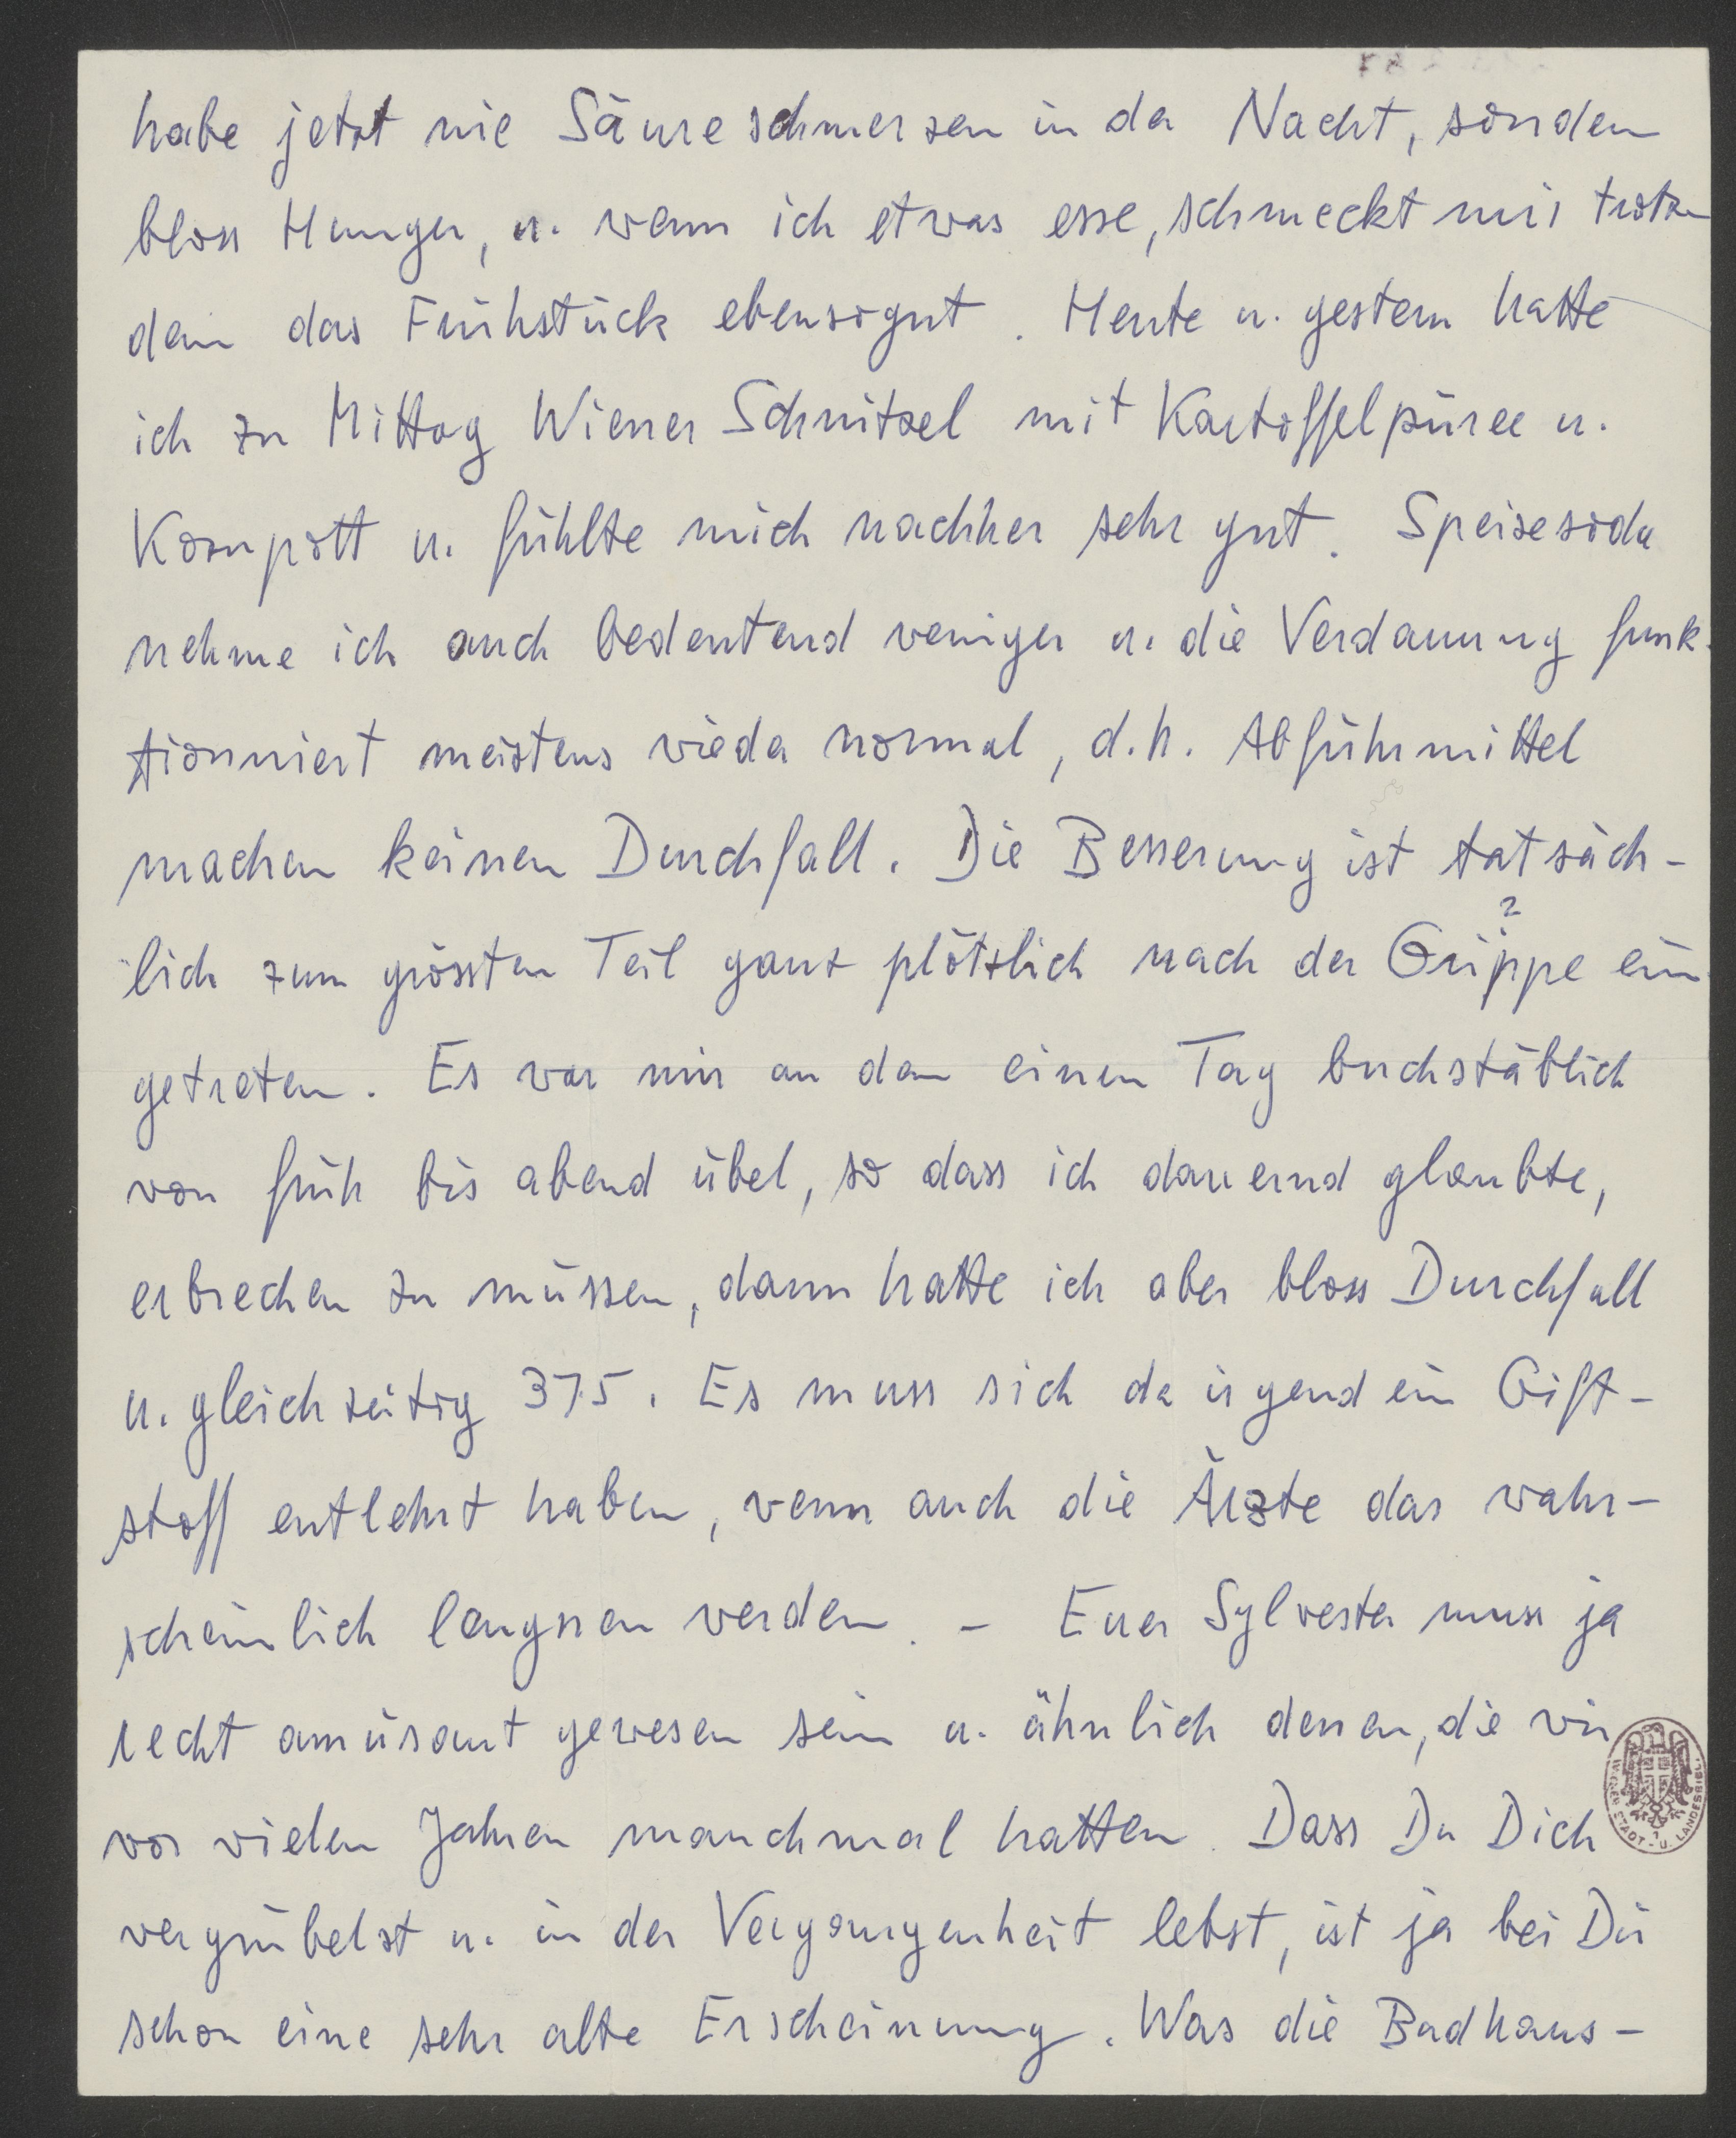 habe jetzt nie Säureschmerzen in der Nacht, sondern
bloss Hunger, u. wenn ich etwas esse, schmeckt mir trotz
dem das Frühstück ebensogut. Heute u. gestern hatte
ich zu Mittag Wiener Schnitzel mit Kartoffelpüree u.
Kompott u. fühlte mich nachher sehr gut. Speisesoda
nehme ich auch bedeutend weniger u. die Verdauung funk-
tionniert meistens wieder normal, d.h. Abführmittel
machen keinen Durchfall. Die Besserung ist tatsäch-
lich zum grössten Teil ganz plötzlich nach der Grippe ein
?
getreten. Es war mir an dem einen Tag buchstäblich
von früh bis abend übel, so dass ich dauernd glaubte,
erbrechen zu müssen, dann hatte ich aber bloss Durchfall
u. gleichzeitig 37.5. Es muss sich da irgend ein Gift-
stoff entlehrt haben, wenn auch die Ärzte das wahr-
scheinlich leugnen werden. – Euer Sylvester muss ja
recht amüsant gewesen sein u. ähnlich denen, die wir
vor vielen Jahren manchmal hatten. Dass Du Dich
vergrübelst u. in der Vergangenheit lebst, ist ja bei Dir
schon eine sehr alte Erscheinung. Was die Badhaus-
WIENER STADT- U. LANDESBIBL.